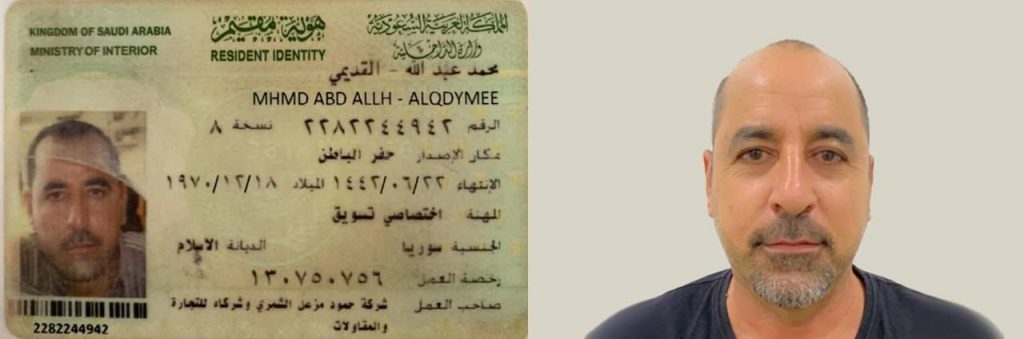 المملكة العربية السعودية
وزارة الداخلية
هوية مقيم
KINGDOM OF SAUDI ARABIA
MINISTRY OF INTERIOR
RESIDENT IDENTITY
محمد عبد الله - القديمي
MHMD ABD ALLH - ALQDYMEE
الرقم ٢٢٨٢٢٤٤٩٤٢ نسخة ٨
مكان الإصدار حفر الباطن
الإنتهاء ١٤٤٢/٠٦/٢٢ الميلاد ١٩٧٠/١٢/١٨
المهنة اختصاصي تسويق
الجنسية سوريا الديانة الاسلام
رخصة العمل ١٣٠٧٥٠٧٥٦
صاحب العمل شركة حمود مزعل الشمري وشركاه للتجارة
والمقاولات
2282244942